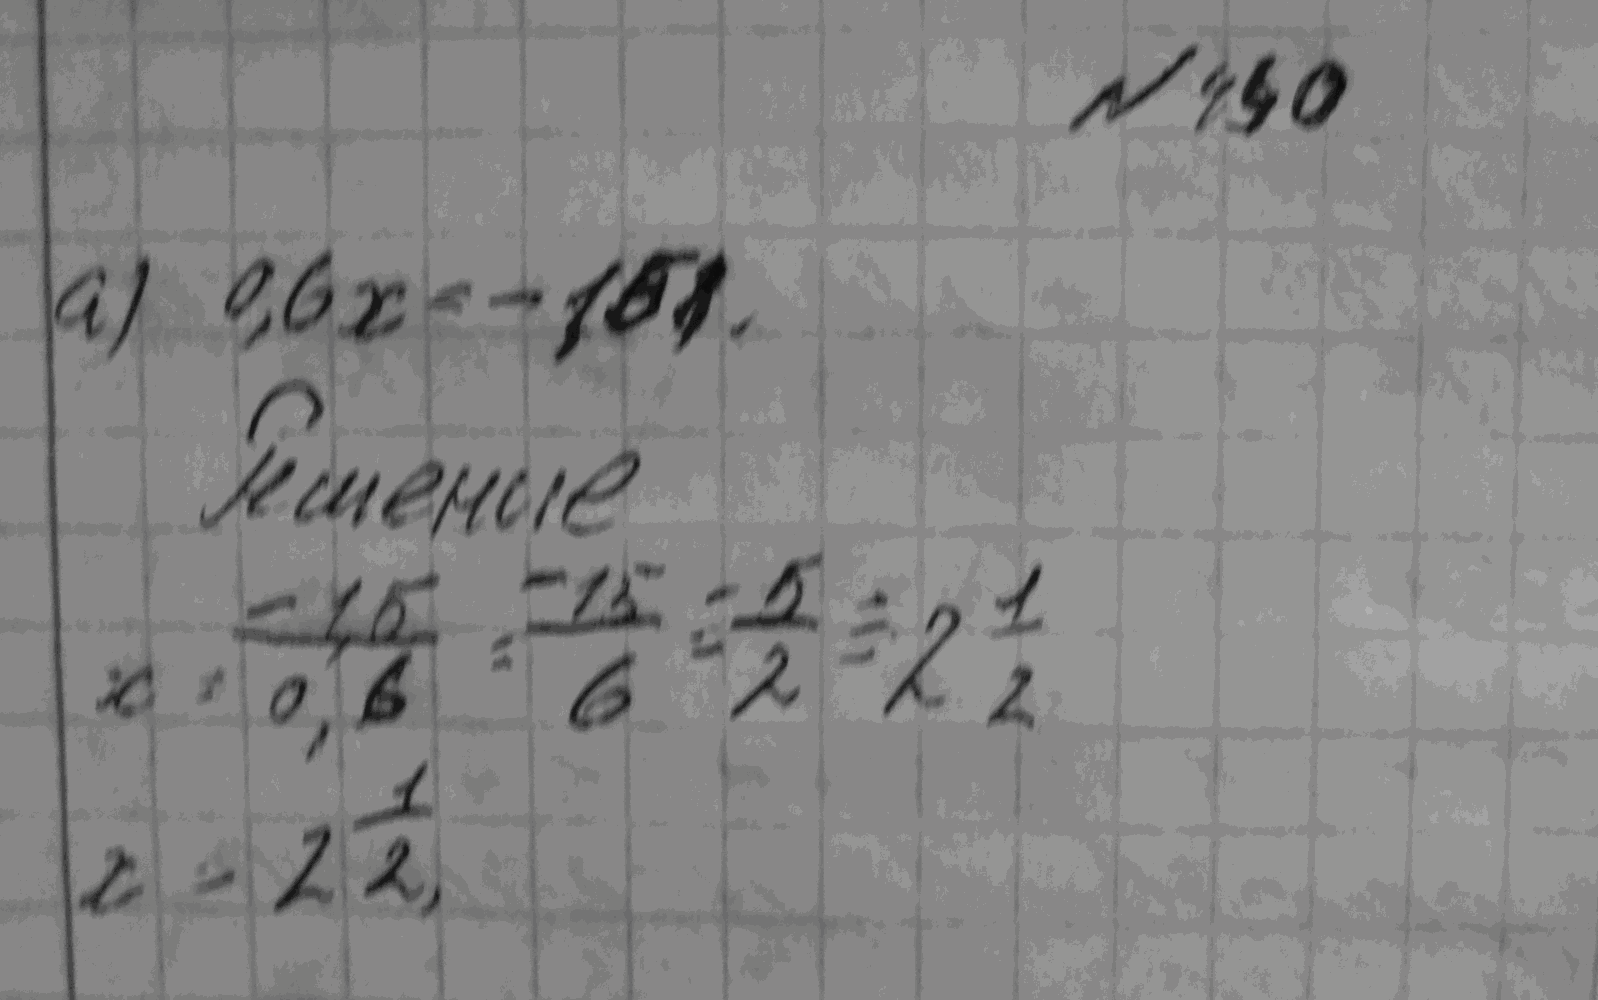 а) 0,6x = -
Решение
x = -1,5/0,6 = -15/6 = -5/2 = 2 1/2
x = 2 1/2,